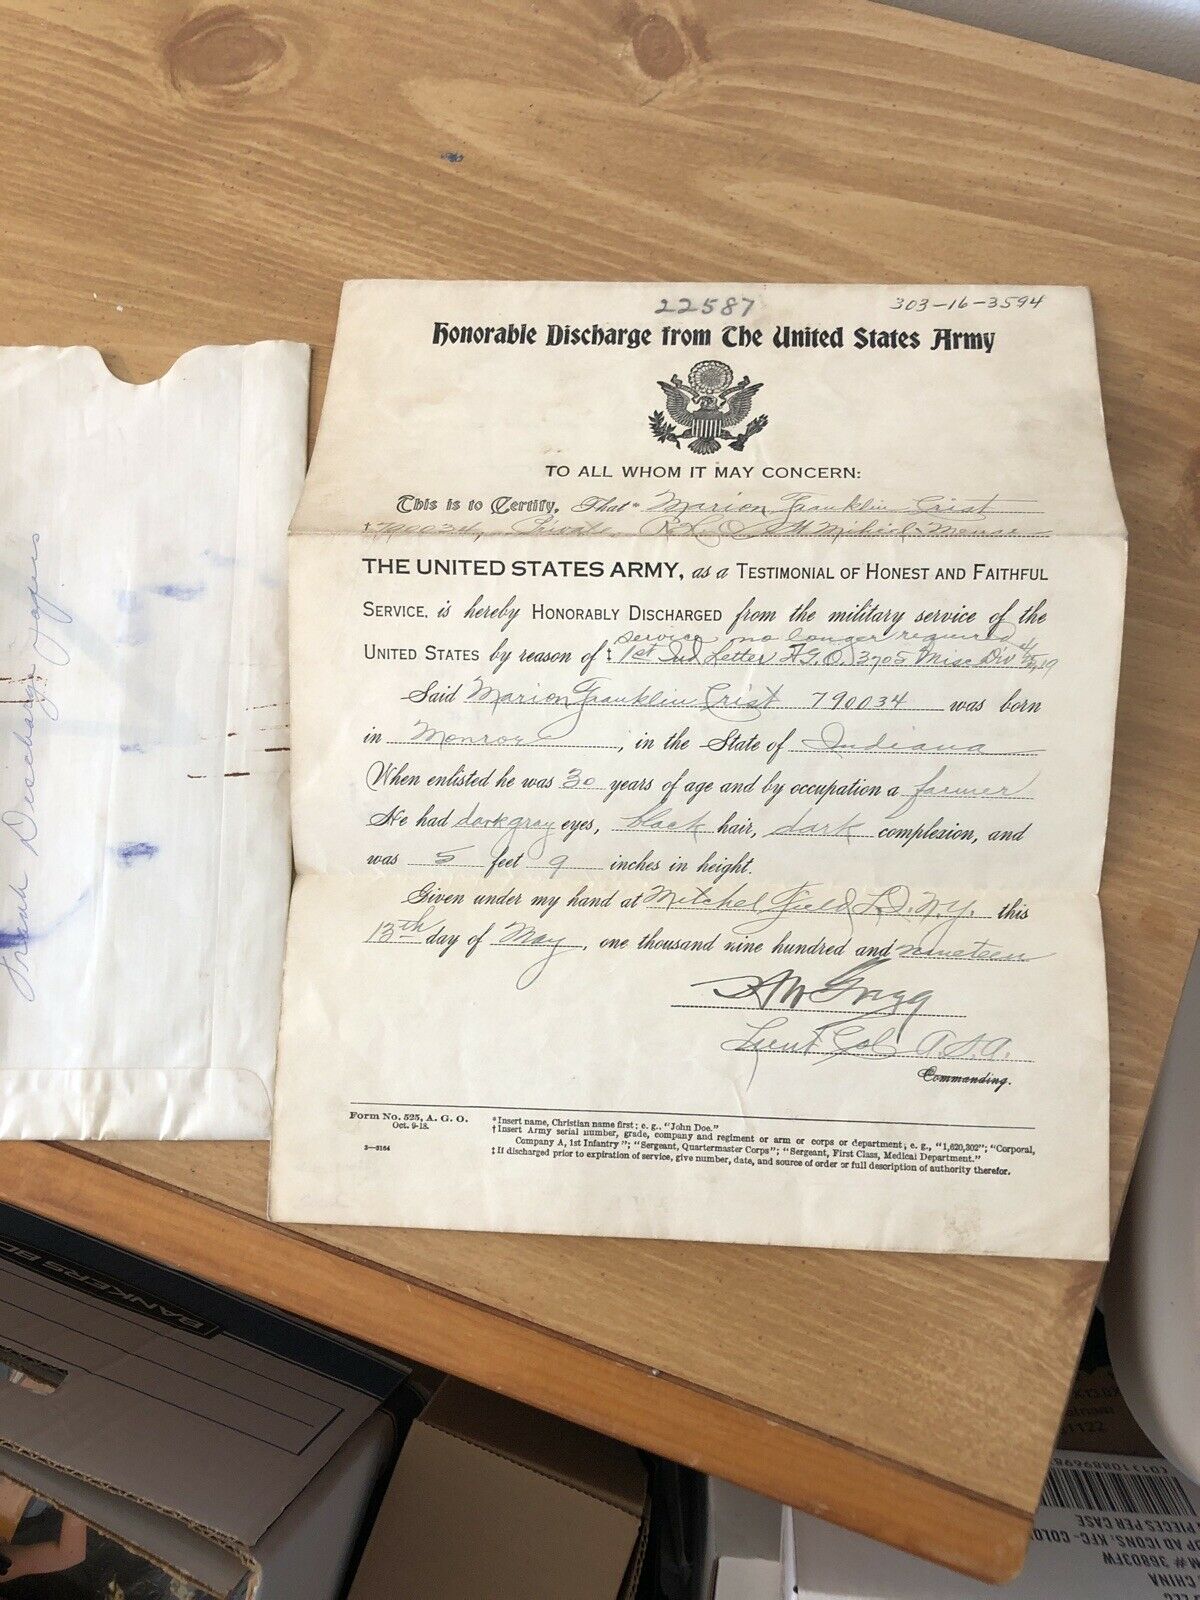 22587 303-16-3594
Honorable Discharge from The United States Army
TO ALL WHOM IT MAY CONCERN:
This is to Certify, That* Marion Franklin Crist
†790034, Private, St Mihiel - Meuse
THE UNITED STATES ARMY, as a TESTIMONIAL OF HONEST AND FAITHFUL
SERVICE, is hereby HONORABLY DISCHARGED from the military service of the
service no longer required
UNITED STATES by reason of ‡ 1st Ind Letter A.G.O. 3705 Misc Div
Said Marion Franklin Crist 790034 was born
in Monroe, in the State of Indiana
When enlisted he was 30 years of age and by occupation a farmer
He had dark gray eyes, black hair, dark complexion, and
was 5 feet 9 inches in height.
Given under my hand at Mitchel Field L.I. N.Y. this
13th day of May, one thousand nine hundred and nineteen
Lieut Col A.S.A.
Commanding.
Form No. 525, A. G. O.
Oct. 9-18.
3—3164
*Insert name, Christian name first; e. g., "John Doe."
†Insert Army serial number, grade, company and regiment or arm or corps or department; e. g., "1,620,302"; "Corporal,
Company A, 1st Infantry"; "Sergeant, Quartermaster Corps"; "Sergeant, First Class, Medical Department."
‡If discharged prior to expiration of service, give number, date, and source of order or full description of authority therefor.
Frank Discharge Papers
BANKERS BO
PIECES PER CASE
OP AD ICONS, KFC- COLO
M # 36803FW
CHINA